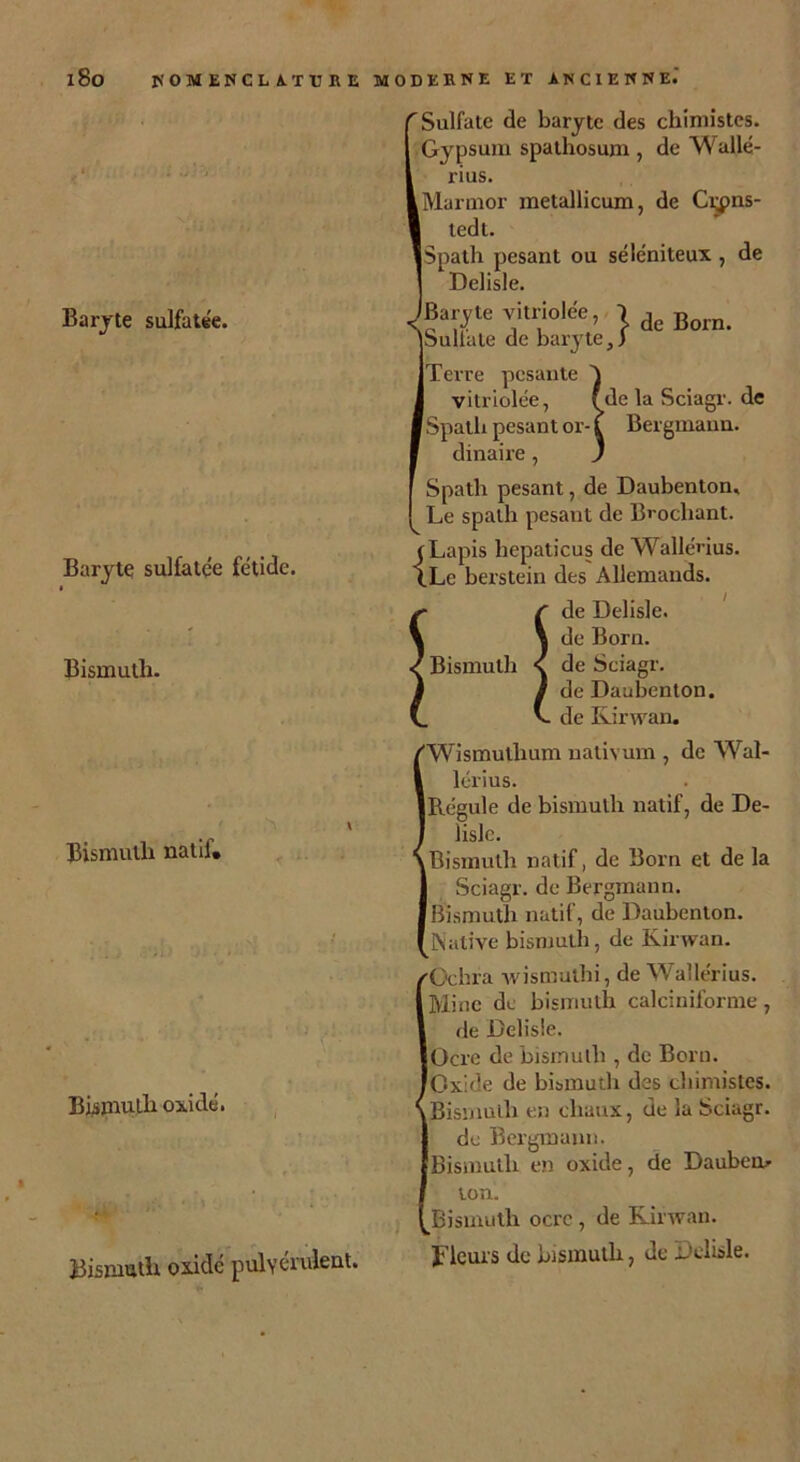 180 NOMENCLATURE MODERNE ET ANCIENNE.
Baryte sulfatée.
Sulfate de baryte des chimistes.
Gypsum spathosum, de Wallé-
rius.
Marmor metallicum, de Crons-
tedt.
Spath pesant ou séléniteux, de
Delisle.
Baryte vitriolée,
Sulfate de baryte,
de Born.
Terre pesante
vitriolée,
Spath pesant or-
dinaire,
de la Sciagr. de
Bergmann.
Spath pesant, de Daubenton.
Le spath pesant de Brochant.
Baryte sulfatée fétide.
Lapis hepaticus de Wallérius.
Le berstein des Allemands.
Bismuth.
Bismuth
de Delisle.
de Born.
de Sciagr.
de Daubenton.
de Kirwan.
Bismuth natif.
Wismuthum nativum, de Wal-
lérius.
Régule de bismuth natif, de De-
lisle.
Bismuth natif, de Born et de la
Sciagr. de Bergmann.
Bismuth natif, de Daubenton.
Native bismuth, de Kirwan.
Bismuth oxidé.
Ochra wismuthi, de Wallérius.
Mine de bismuth calciniforme,
de Delisle.
Ocre de bismuth, de Born.
Oxide de bismuth des chimistes.
Bismuth en chaux, de la Sciagr.
de Bergmann.
Bismuth en oxide, de Dauben-
ton.
Bismuth ocre, de Kirwan.
Bismuth oxidé pulvérulent.
Fleurs de bismuth, de Delisle.